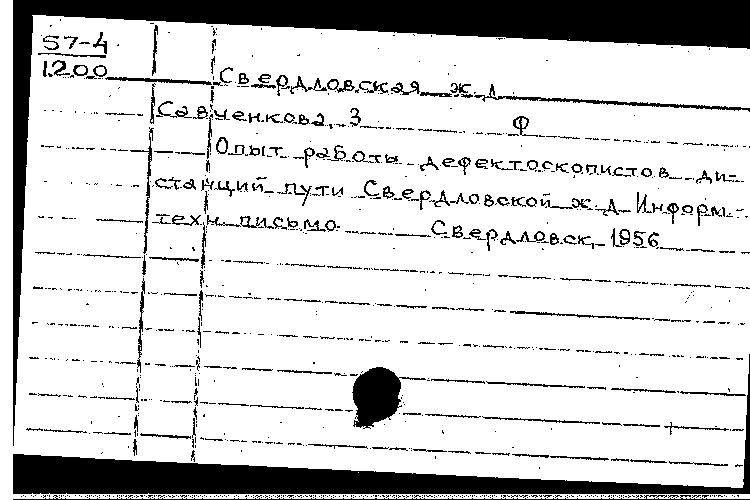 57-4
1200
Свердловская ж. д.
Савченкова, З Ф
Опыт работы дефектоскопистов ди-
станций пути Свердловской ж. д. Информ.-
техн. письмо. Свердловск, 1956